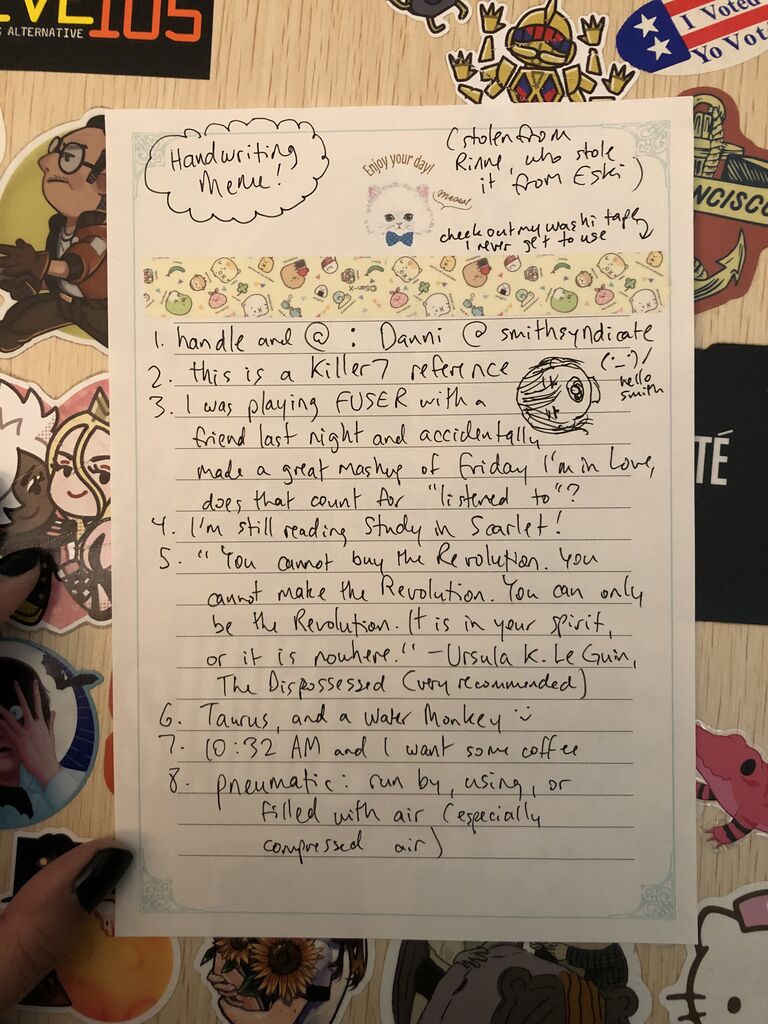 VE 105
S ALTERNATIVE
I Voted
Yo Vot
NCISCO
Handwriting
Meme!
(stolen from
Rinne, who stole
it from Eski)
Enjoy your day!
meow!
check out my washi tape
I never get to use
©San-X
1. handle and @ : Danni @ smithsyndicate
2. this is a Killer7 reference
(._.)/
hello
smith
3. I was playing FUSER with a
friend last night and accidentally
made a great mashup of Friday I'm in Love,
does that count for "listened to"?
TÉ
4. I'm still reading Study in Scarlet!
5. "You cannot buy the Revolution. You
cannot make the Revolution. You can only
be the Revolution. It is in your spirit,
or it is nowhere." - Ursula K. Le Guin,
The Dispossessed (very recommended)
6. Taurus, and a Water Monkey :)
7. 10:32 AM and I want some coffee
8. pneumatic: run by, using, or
filled with air (especially
compressed air)